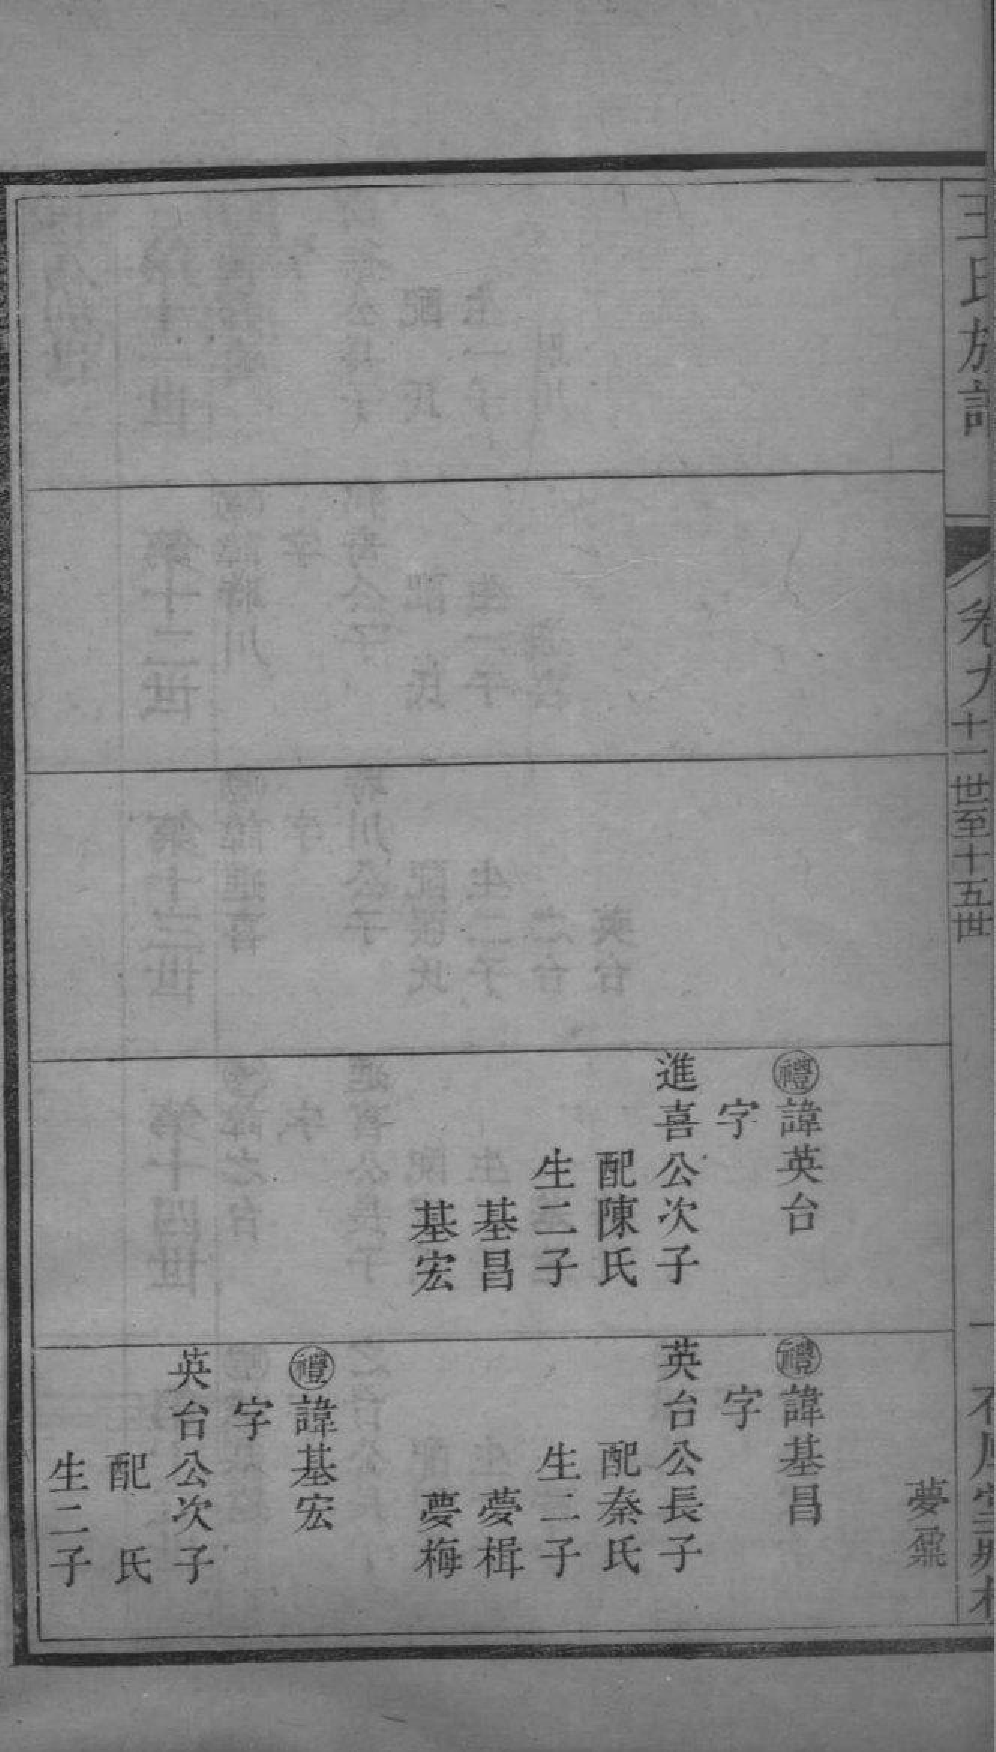 王氏族譜
卷九
十一世至十五世
㊝諱英台
字
進喜公次子
配陳氏
生二子
基昌
基宏
夢
諱基昌
字
英台公長子
配秦氏
生二子
夢楫
夢梅
諱基宏
字
英台公次子
配　氏
生二子